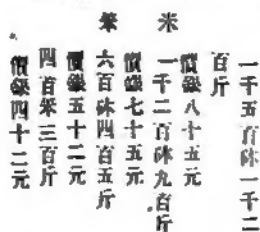 米笨
一千五百砵一千二
百斤
價銀八十五元
一千二百砵九百斤
價銀七十五元
六百砵四百五斤
價銀五十二元
四百笨三百斤
價銀四十二元